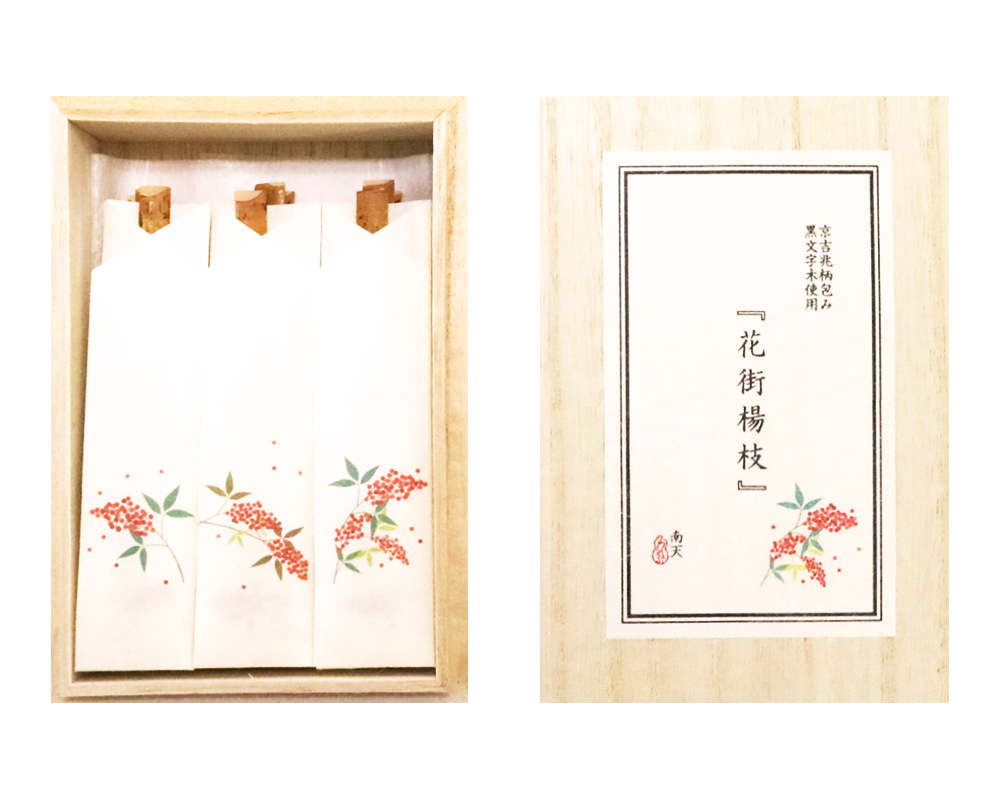 京吉兆柄包み
黒文字木使用
『花街楊枝』
南天